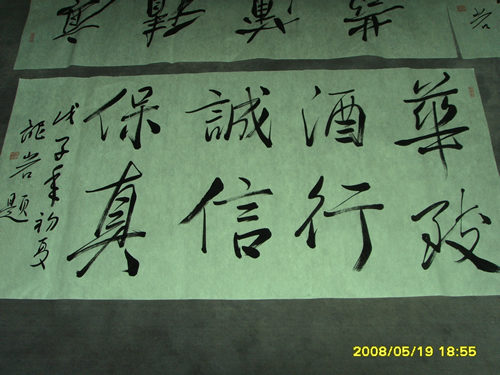 華致
酒行
誠信
保真
戊子年初夏
岩题
真
岩
2008/05/19 18:55